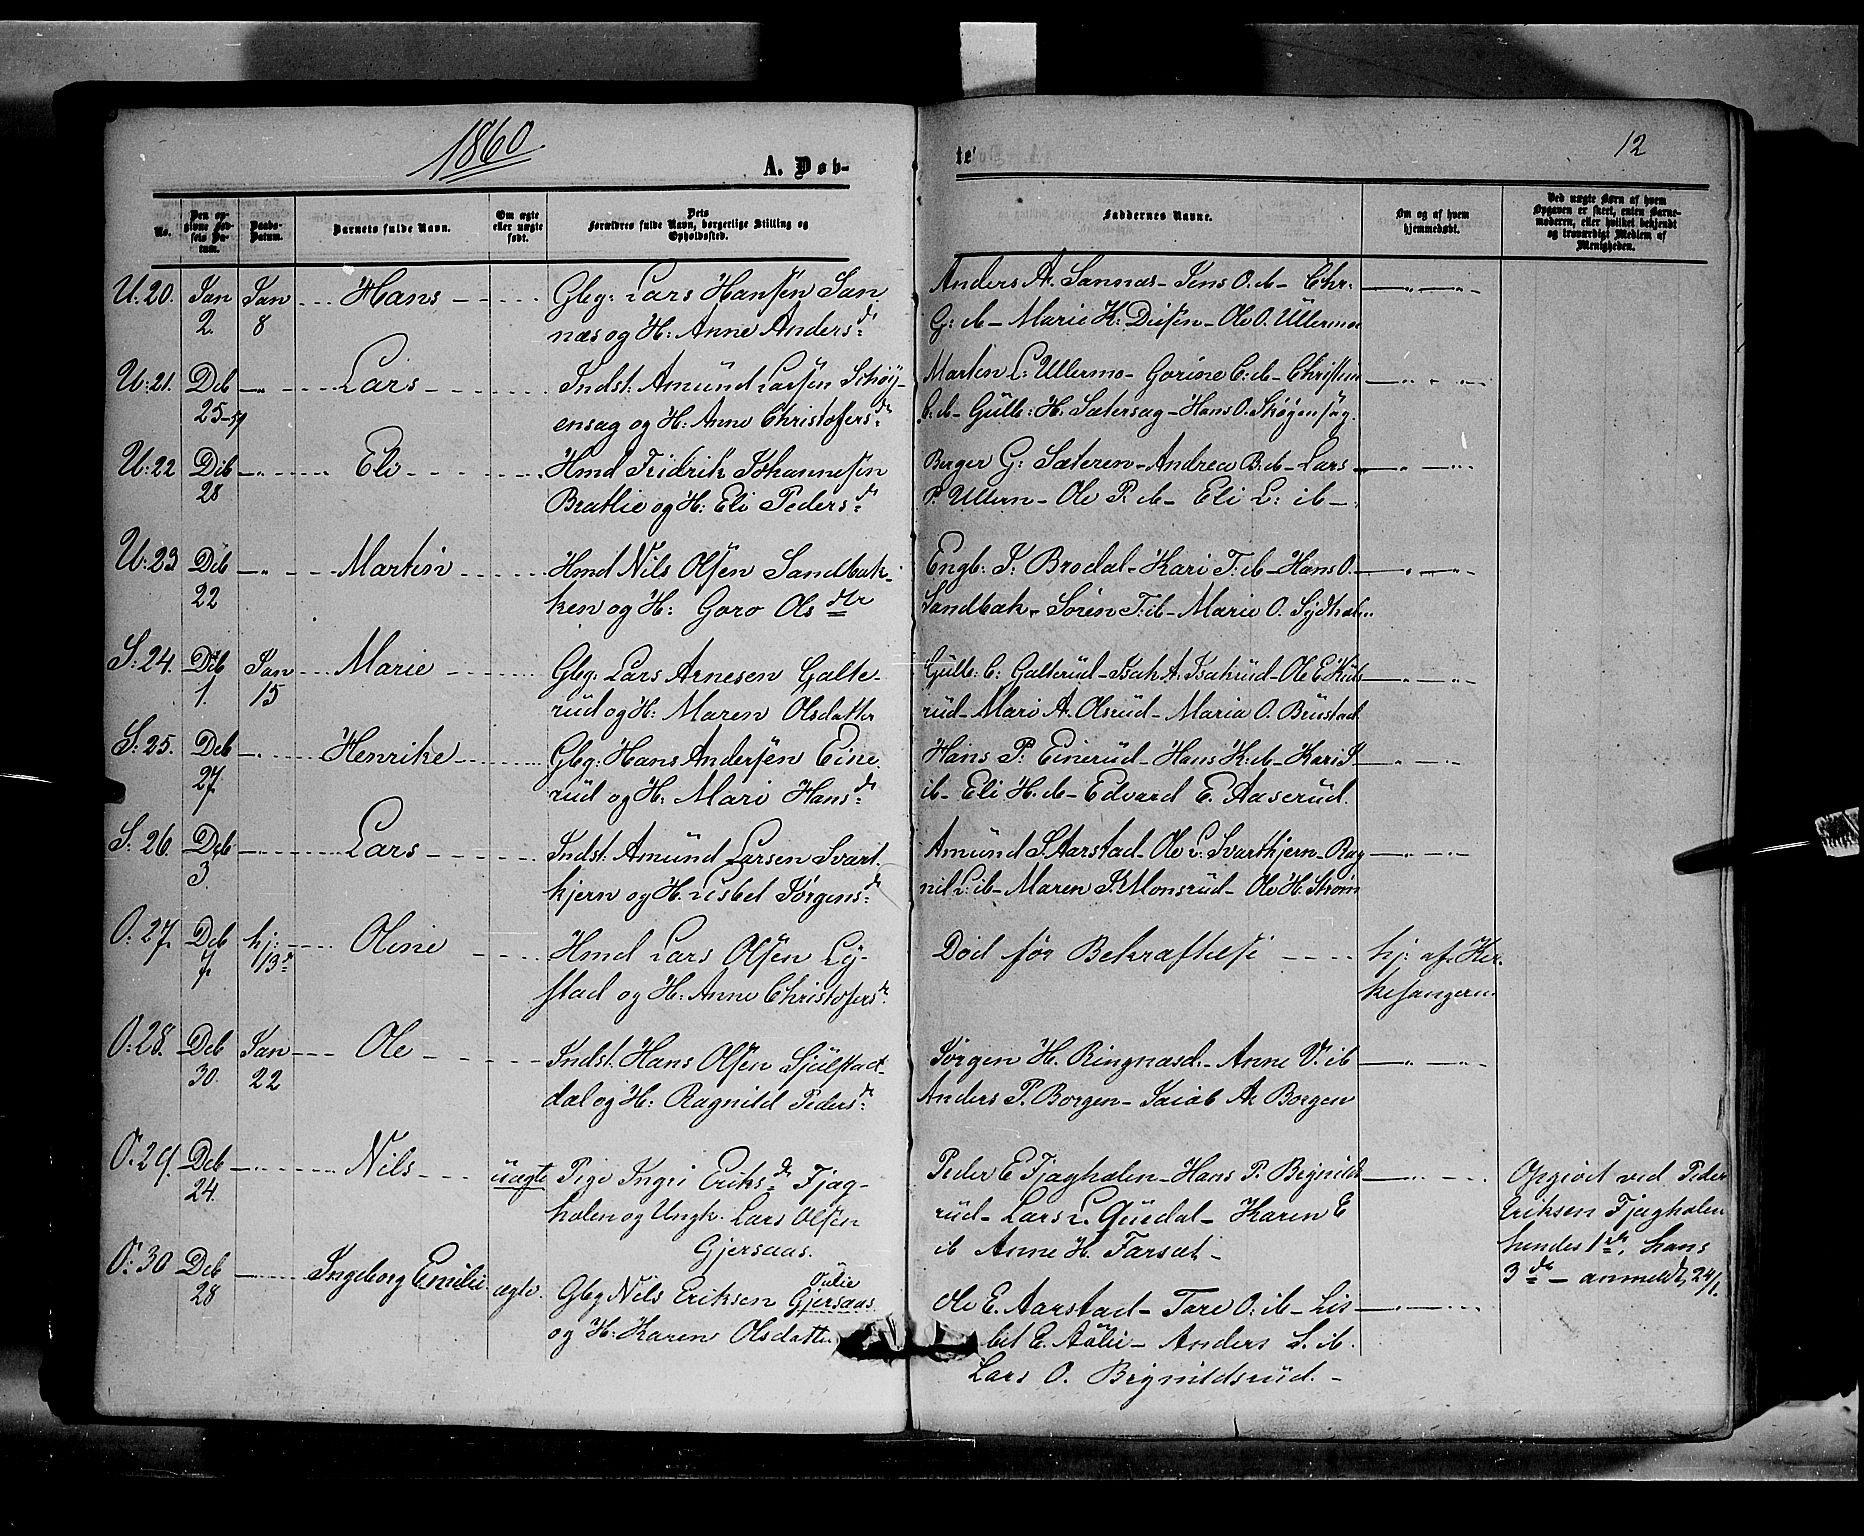 1860
A. Døb-
te
12
No.
Den opgivne Fødsels Datum.
Daabs-Datum.
Barnets fulde Navn.
Om ægte eller uægte født.
Dets
Forældres fulde Navn, borgerlige Stilling og
Opholdssted.
Faddernes Navne.
Om og af hvem
hjemmedøbt.
Ved uægte Børn af hvem
Opgaven er skeet, enten Barne-
moderen, eller hvilket bekjendt
og troværdigt Medlem af
Menigheden.
U: 20. Jan 2. Jan 8 Hans Gbg: Lars Hansen San
næs og H: Anne Anders dr
Anders A. Sannæs - Jens O. ib - Chr:
G: ib - Marie K: Diesen - Ole O. Ullermo
U: 21. Deb 25-59 Lars Indst: Amund Larsen Schøy-
ensag og H: Anne Christofers dr
Martin L: Ullermo - Gorine C: ib - Christian
C. ib - Gulb: H. Sætersag - Hans O. Skøgensag.
U: 22 Deb 28 Eli Hmd Fridrik Johannesen
Bratlie og H: Eli Peders dr
Berger G: Sæteren - Andrea B. ib - Lars
P. Ullern - Ole P. ib - Eli L: ib -
U: 23 Deb 22 Martin Hmd Nils Olsen Sandbak-
ken og H: Goro Ols dtr
Engb: J. Brodal - Kari T: ib - Hans O.
Sandbak - Soren T: ib - Marie O.
S: 24. Deb 1. Jan 15 Marie Gbg: Lars Arnesen Galte
rud og H: Maren Olsdatter
Gulb: C: Galterud - Isak A. Isakrud - Ole E
rud - Mari A. Olsrud - Maria O. Brustad
S: 25. Deb 27. Henrike Gbg: Hans Andersen Eine
rud og H: Mari Hans dr
Hans P. Einerud - Hans K: ib - Kari S
ib - Eli H. ib - Edvard E. Aaserud.
S: 26. Deb 3. Lars Indst. Amund Larsen Svart
kjern og H. Lisbet Jørgens dr
Amund S Aarstad - Ole L: Svartkjern - Rag
nil L: ib - Maren P. Monsrud - Ole H. Strøm
O: 27. Deb 7. hj: 13 Oline Hmd Lars Olsen Ly-
stad og H: Anne Christofers dr
Død før Bekræftelse hj: af Kir-
kesangeren
O: 28. Deb 30. Jan 22 Ole Indst. Hans Olsen Sjulstad-
dal og H: Ragnild Peders dr
Jørgen H. Ringnæsd: - Anne V. ib
Anders P. Borgen - Jacob A. Borgen
O: 29. Deb 24. Nils uægte Pige Ingri Eriks dr Fjag-
halen og Ungk. Lars Olsen
Gjersaas.
Peder E Fjaghalen - Hans P. Brynild
rud - Lars L Guedal - Karen E
ib Anne H. Farsæt -
Opgivet ved Peder
Eriksen Fjaghalen
hendes 1ste, hans
3de - anmeldt 24/1.
O: 30 Deb 28 Ingeborg Emilie ægte. Gbg Nils Eriksen Gjersaas
og H: Karen Olsdatter
Ole E. Aarstad - Tore O: ib - Lis
bet E. Aalie - Anders S. ib.
Lars O. Brynildsrud. -